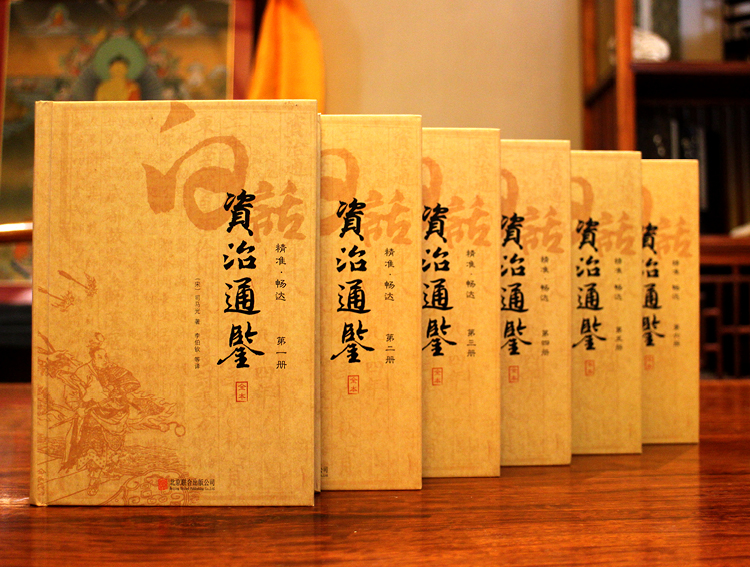 白话
資治通鑒
精准·畅达
第一册
[宋]司马光 著
李伯钦 等译
全本
北京联合出版公司
Beijing United Publishing Co.,Ltd.
白话
資治通鑒
精准·畅达
第二册
全本
白话
資治通鑒
精准·畅达
第三册
全本
白话
資治通鑒
精准·畅达
第四册
全本
白话
資治通鑒
精准 畅达
第五册
白话
資治通鑒
精准 畅达
第六册